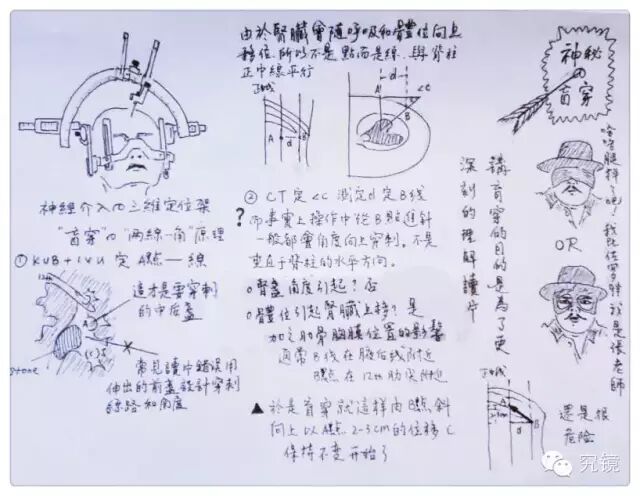 神經介入の三維定位架
"盲穿"の"兩線一角"原理
① KUB+IVU 定 A點一線
12th
這才是要穿刺
的中后盞
A
stone
常見讀片錯誤用
伸出的前盞設計穿刺
線路和角度
由於腎臟會隨呼吸和體位向上
移位,所以不是點而是線,與脊柱
正中線平行
A
d
B
A
d
∠c
B
② CT 定 ∠c 測定 d 定 B线
? 而事實上操作中從 B點進針
一般都會角度向上穿刺,不是
垂直于脊柱的水平方向。
○腎盞角度引起? 否
○體位引起腎臟上移? 是
加之肋骨胸膜位置的影響
通常 B线 在腋后线附近
B點 在 12th 肋尖附近
▲ 於是盲穿就這樣由 B點斜
向上以 A點 2-3cm 的位移 C
保持不變開始了
講盲穿的目的是為了更
深刻的理解讀片
神秘
の
盲穿
OR
我是張老師
A
2-3cm
d
B
還是很
危险
究镜